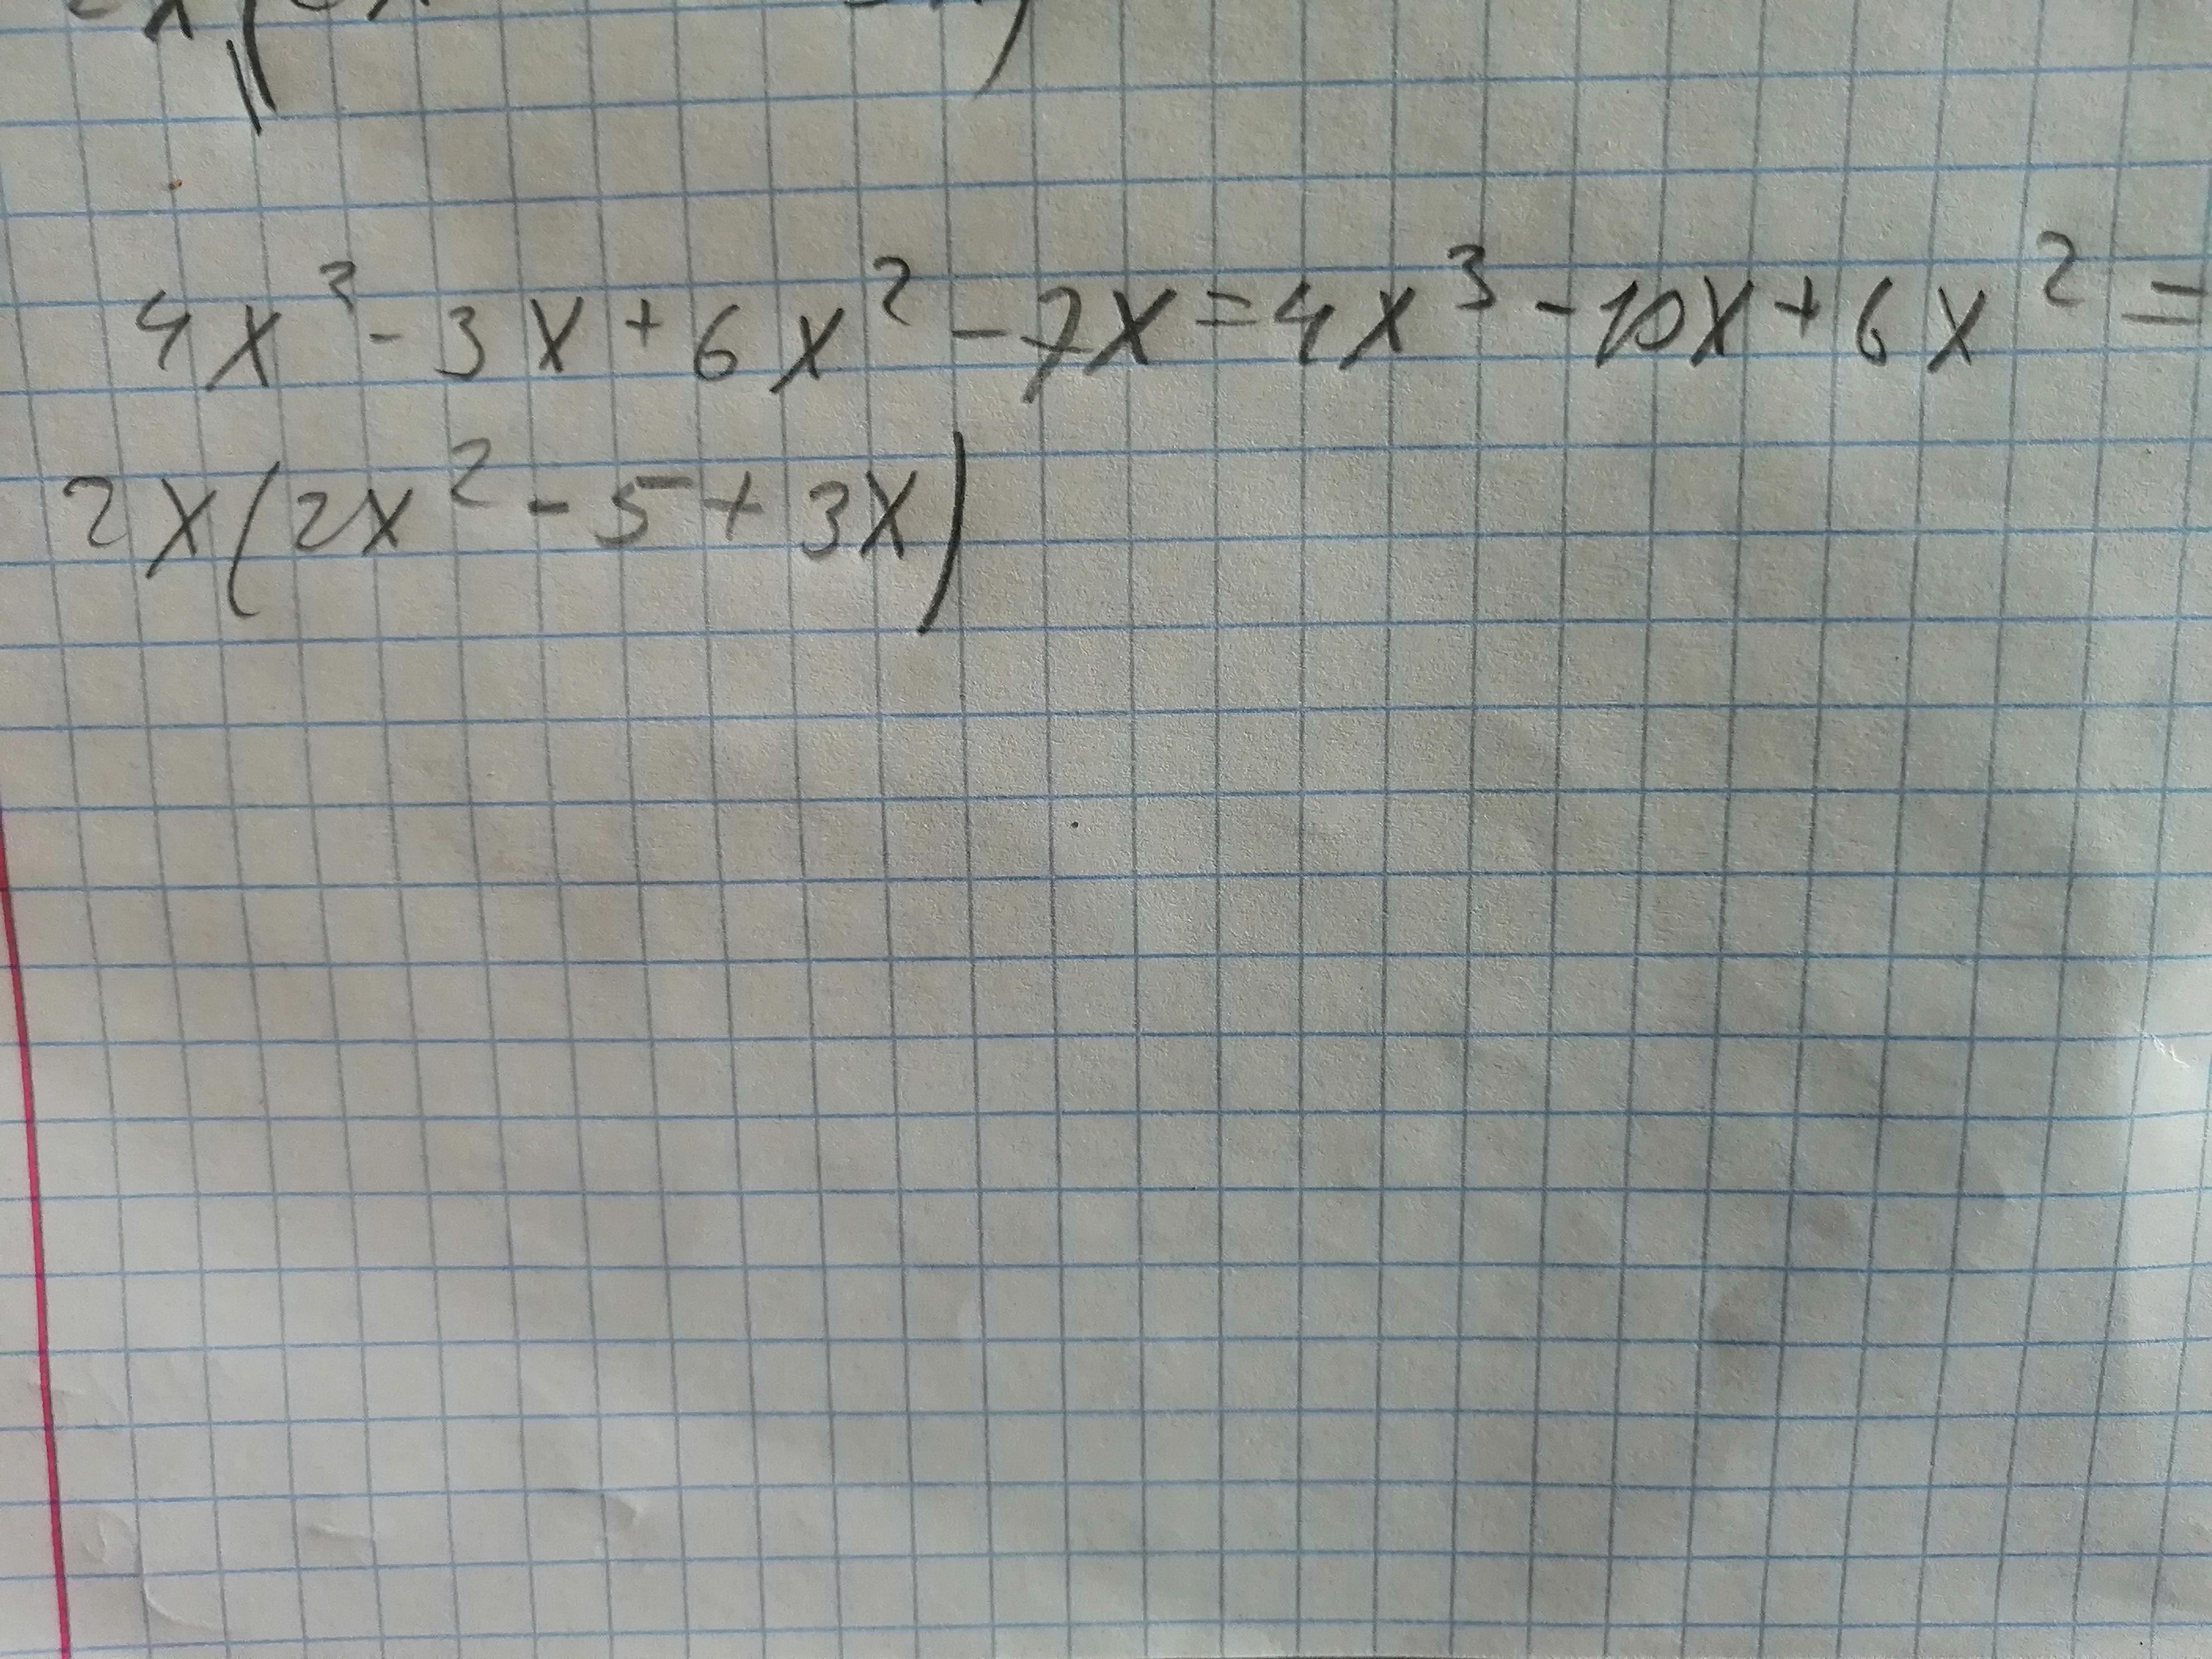 4x³-3x+6x²-7x=4x³-10x+6x²=
2x(2x²-5+3x)